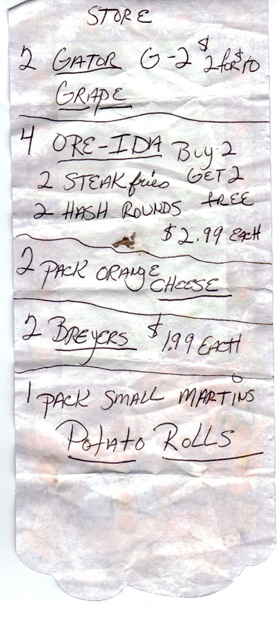 STORE
2 GATOR G-2 $ 2 for $10
GRAPE
4 ORE-IDA Buy 2
2 STEAK fries GET 2
2 HASH ROUNDS FREE
$2.99 EACH
2 PACK ORANGE CHEESE
2 BREYERS $1.99 EACH
1 PACK SMALL MARTINS
POTATO ROLLS